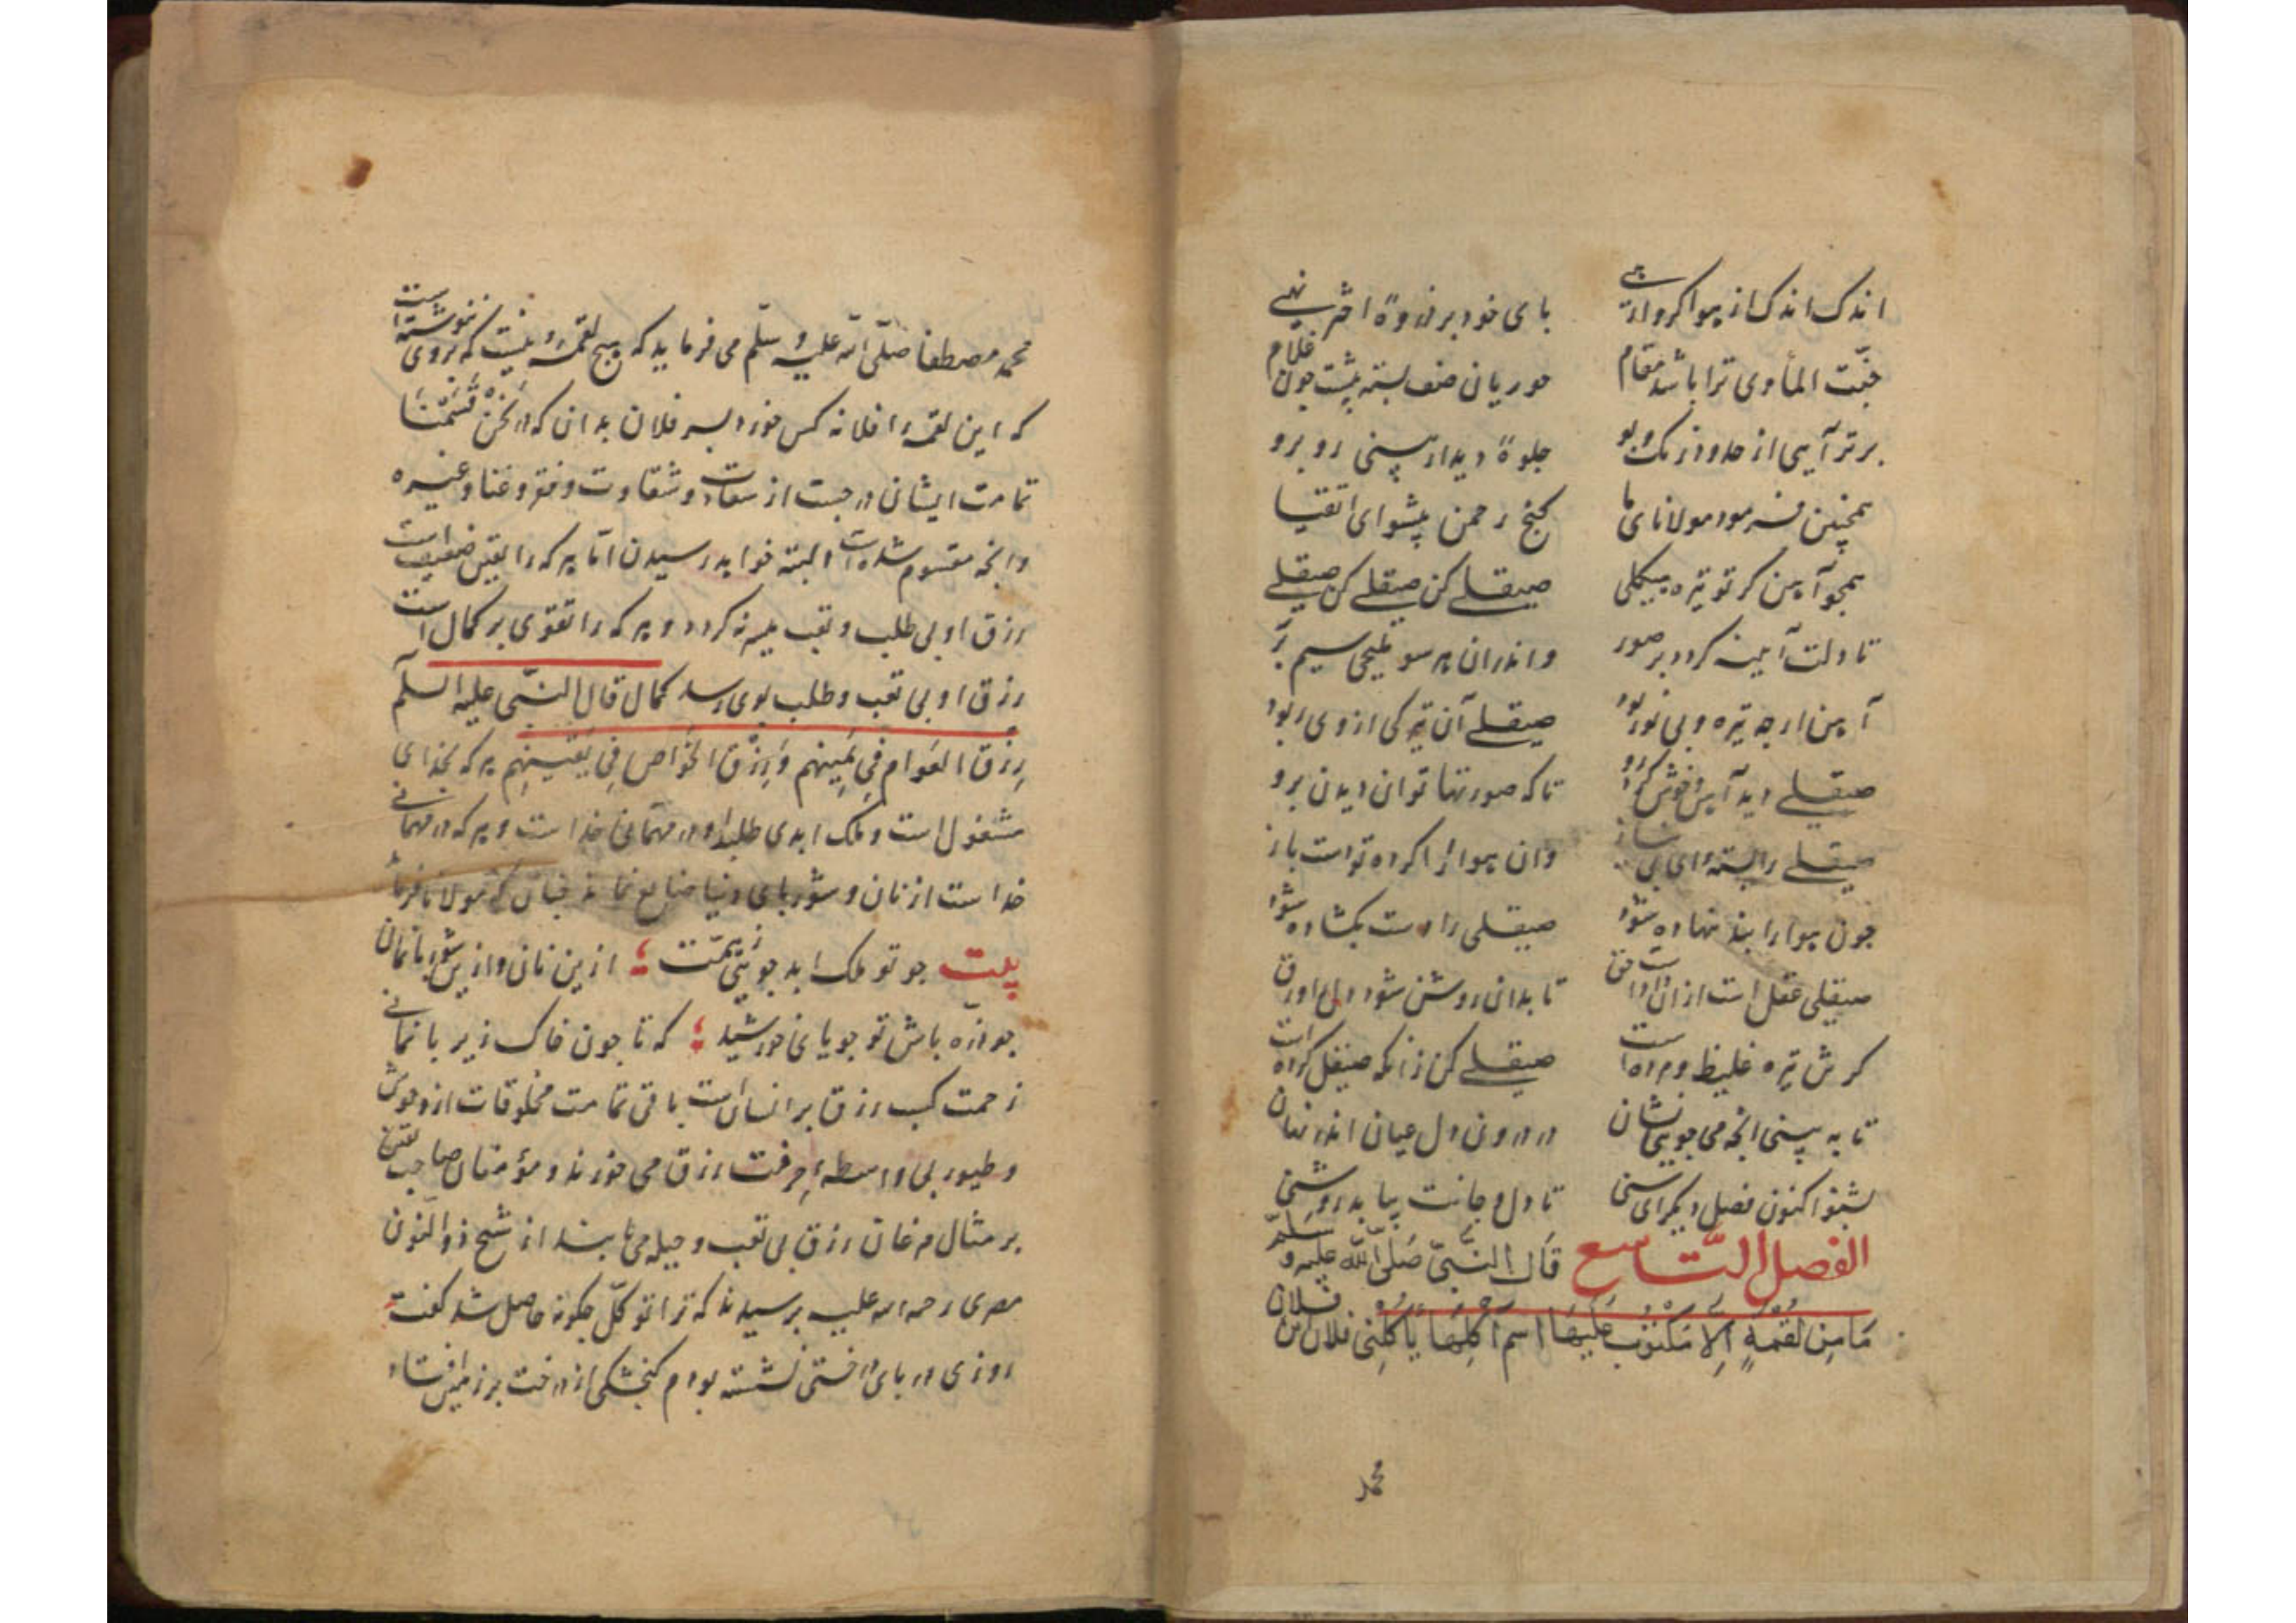 اندک اندک از هوا کر وارهی بای خود بر ذروهٔ اختر نهی
جنّت المأوی ترا باشد مقام حوریان صف بسته پیشت چون غلام
برتر آیی از حدود رنک و بو جلوهٔ دیدار بینی رو برو
همچنین فرمود مولانای ما کنج رحمن پیشوای اتقیا
همچو آهن کر تو تیره هیکلی صیقلی کن صیقلی کن صیقلی
تا دلت آینه کردد بر صور و اندران هر سو ملیحی سیم بر
آهن ارچه تیره و بی نور بود صیقلی آن تیرکی از وی ربود
صیقلی دید آهن و خوش کرد رو تا که صورتها توان دیدن برو
صیقلی را بسته ای بی نماز وان هوا را کرده دو دست باز
جون هوا را بند نهاده شود صیقلی را دست بکشاده شود
صیقلی عقل است از آن دادست حق تا بدان روشن شود دل را ورق
کر تنش تیره غلیظ و مرده است صیقلی کن زانکه صیقل کرده است
تا به بینی انجه می جویی نشان در درون دل عیان اندر نهان
بشنو اکنون فصل دیکر ای سنی تا دل و جانت بیابد روشنی
الفصل التّاسع قال النّبیّ صَلّی اللّه علیه و سلّم
مَا مِن لُقمَةٍ اِلّا مَکتُوبٌ عَلیهَا اسم آکِلِهَا یَأکُلنی فلان بن فلان
محمد
محمد مصطفا صلّی اللّه علیه و سلّم می فرماید که هیچ لقمهٔ نیست که بر وی ننوشته است
که این لقمه را فلانه کس خورد بسر فلان بدان که در نَحْنُ قَسَمْنَا
تمامت ایشان درجست از سعادت و شقاوت و فقر و غنا و غیره
وانجه مقسوم شده است البته خواهد رسیدن امّا هر که را یقین ضعیف است
رزق او بی طلب و تعب میسر نه کردد و هر که را تقوی بر کمال است
رزق او بی تعب و طلب بوی رسد کمال قال النبّی علیه السلم
رِزقُ العَوام فِی یَمِینِهم وَ رِزقُ الخَواص فِی یَقینِهِم هر که بخدای
مشغول است و ملک ابدی طلبد او در مهمانی خداست و هر که در مهمانی
خداست از نان و شوربای دنیا ضایع نماند جنانکه مولانا فرماید
بیت جو تو ملک ابد جویی بهمّت ؛ ازین نان و ازین شوربا نمانی
جو ذرّه باش تو جویای خورشید ؛ که تا جون خاک زیر با نمانی
زحمت کسب رزق بر انسانست باقی تمامت مخلوقات از وحوش
و طیور بی واسطهٔ حِرفت رزق می خورند و مؤمنان صاحب یقین
بر مثال مرغان رزق بی تعب و حیله می یابند از شیخ ذوالنّون
مصری رحمه الله علیه برسیدند که ترا توکّل جکونه حاصل شد کفت
روزی در بای درختی نشسته بودم کنجشکی از درخت بر زمین افتاد